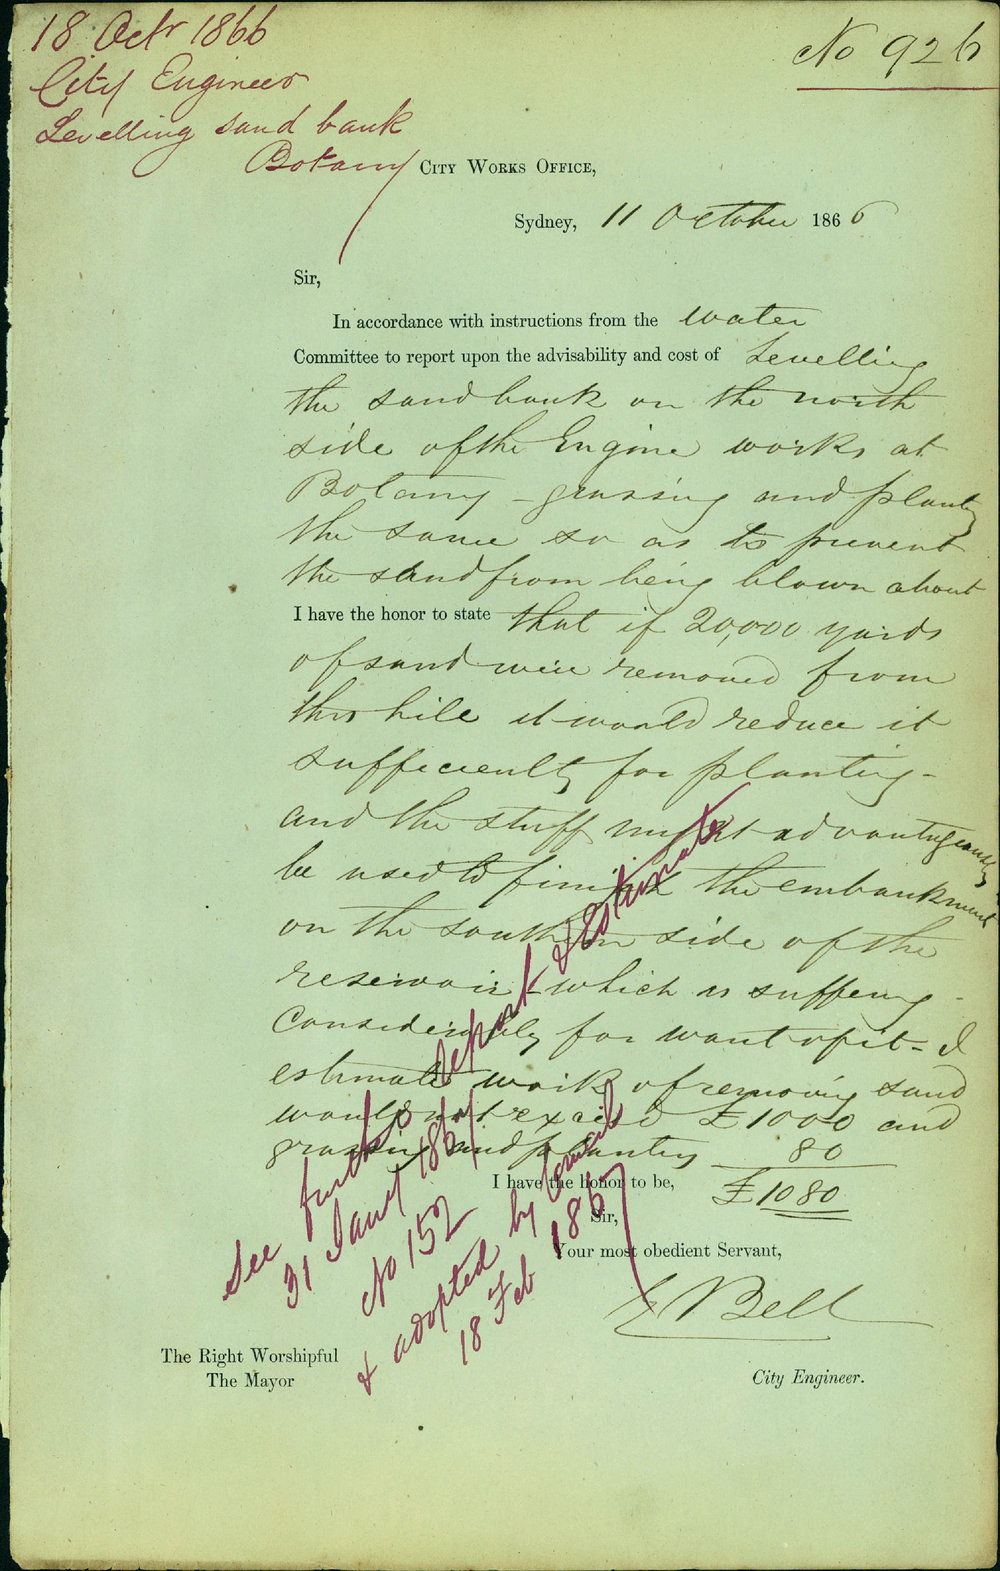 18 Octr 1866
No 926
City Engineer
Levelling sand bank
Botany
City Works Office,
Sydney, 11 October 1866
Sir,
In accordance with instructions from the Water
Committee to report upon the advisability and cost of Levelling
the sand bank on the north
side of the Engine works at
Botany - grassing and planting
the same so as to prevent
the sand from being blown about
I have the honor to state that if 20,000 yards
of sand were removed from
this hill it would reduce it
sufficiently for planting -
and the stuff might advantageously
be used to finish the embankment
on the southern side of the
reservoir - which is suffering
considerably for want of it - I
estimate work of removing sand
would not exceed £1000 and
grassing and planting 80
£1080
I have the honor to be,
Sir,
Your most obedient Servant,
E Bell
City Engineer.
The Right Worshipful
The Mayor
See further report & Estimate
31 Jany 1867
No 152
& adopted by Council
18 Feb 1867